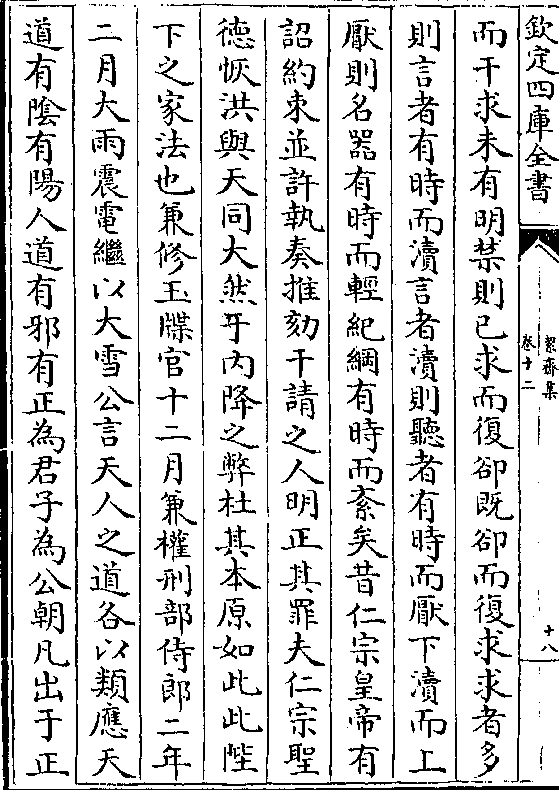 欽定四庫全書
絜齋集
卷十二
十八
而干求未有明禁則已求而復卻既卻而復求求者多
則言者有時而瀆言者瀆則聽者有時而厭下瀆而上
厭則名器有時而輕紀綱有時而紊矣昔仁宗皇帝有
詔約束並許執奏推劾干請之人明正其罪夫仁宗聖
徳恢洪與天同大然於内降之弊杜其本原如此此陛
下之家法也兼修玉牒官十二月兼權刑部侍郎二年
二月大雨震電繼以大雪公言天人之道各以類應天
道有陰有陽人道有邪有正為君子為公朝凡出于正